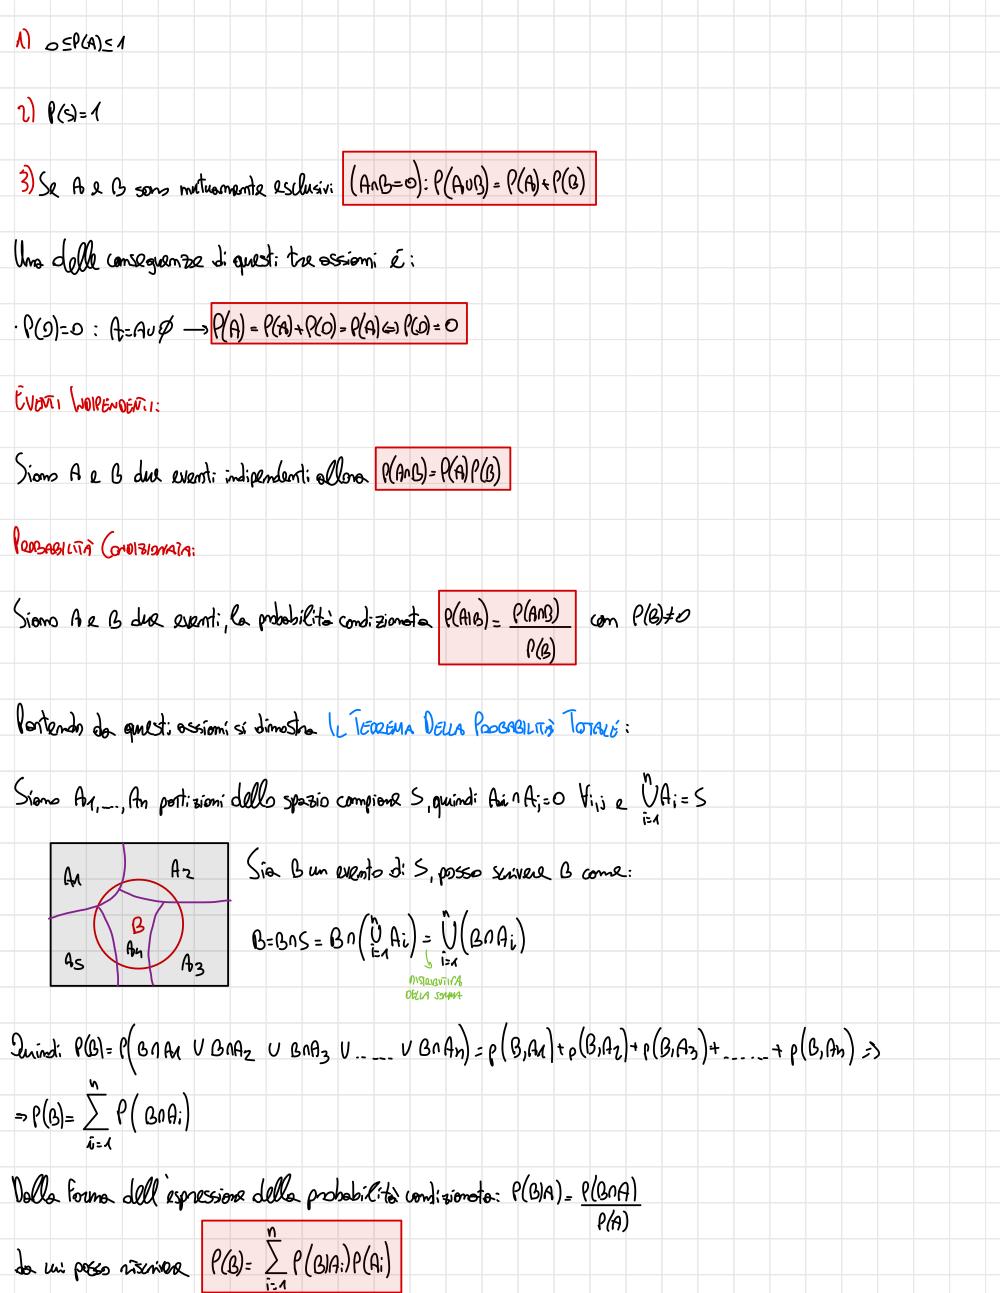 1) 0≤P(A)≤1
2) P(S)=1
3) Se A e B sono mutuamente esclusivi (A∩B=0): P(A∪B) = P(A)+P(B)
Una delle conseguenze di questi tre assiomi è:
· P(0)=0 : A=A∪∅ → P(A) = P(A)+P(0) = P(A) ⇔ P(0)=0
EVENTI INDIPENDENTI:
Siano A e B due eventi indipendenti allora P(A∩B)=P(A)P(B)
PROBABILITÀ CONDIZIONATA:
Siano A e B due eventi, la probabilità condizionata P(A|B) = P(A∩B)/P(B) con P(B)≠0
Partendo da questi assiomi si dimostra IL TEOREMA DELLA PROBABILITÀ TOTALE:
Siano A1,...., An partizioni dello spazio campione S, quindi Ai∩Aj=0 ∀i,j e ⋃_{i=1}^{n} Ai = S
A1 A2
B
A4
A5 A3
Sia B un evento di S, posso scrivere B come:
B=B∩S = B∩(⋃_{i=1}^{n} Ai) = ⋃_{i=1}^{n} (B∩Ai)
DISTRIBUTIVA
DELLA SOMMA
Quindi P(B)= P(B∩A1 ∪ B∩A2 ∪ B∩A3 ∪ ...... ∪ B∩An) = p(B,A1)+p(B,A2)+p(B,A3)+.......+p(B,An) ⇒
⇒ P(B)= ∑_{i=1}^{n} P(B∩Ai)
Dalla Forma dell'espressione della probabilità condizionata: P(B|A) = P(B∩A)/P(A)
da cui posso riscrivere P(B)= ∑_{i=1}^{n} P(B|Ai)P(Ai)